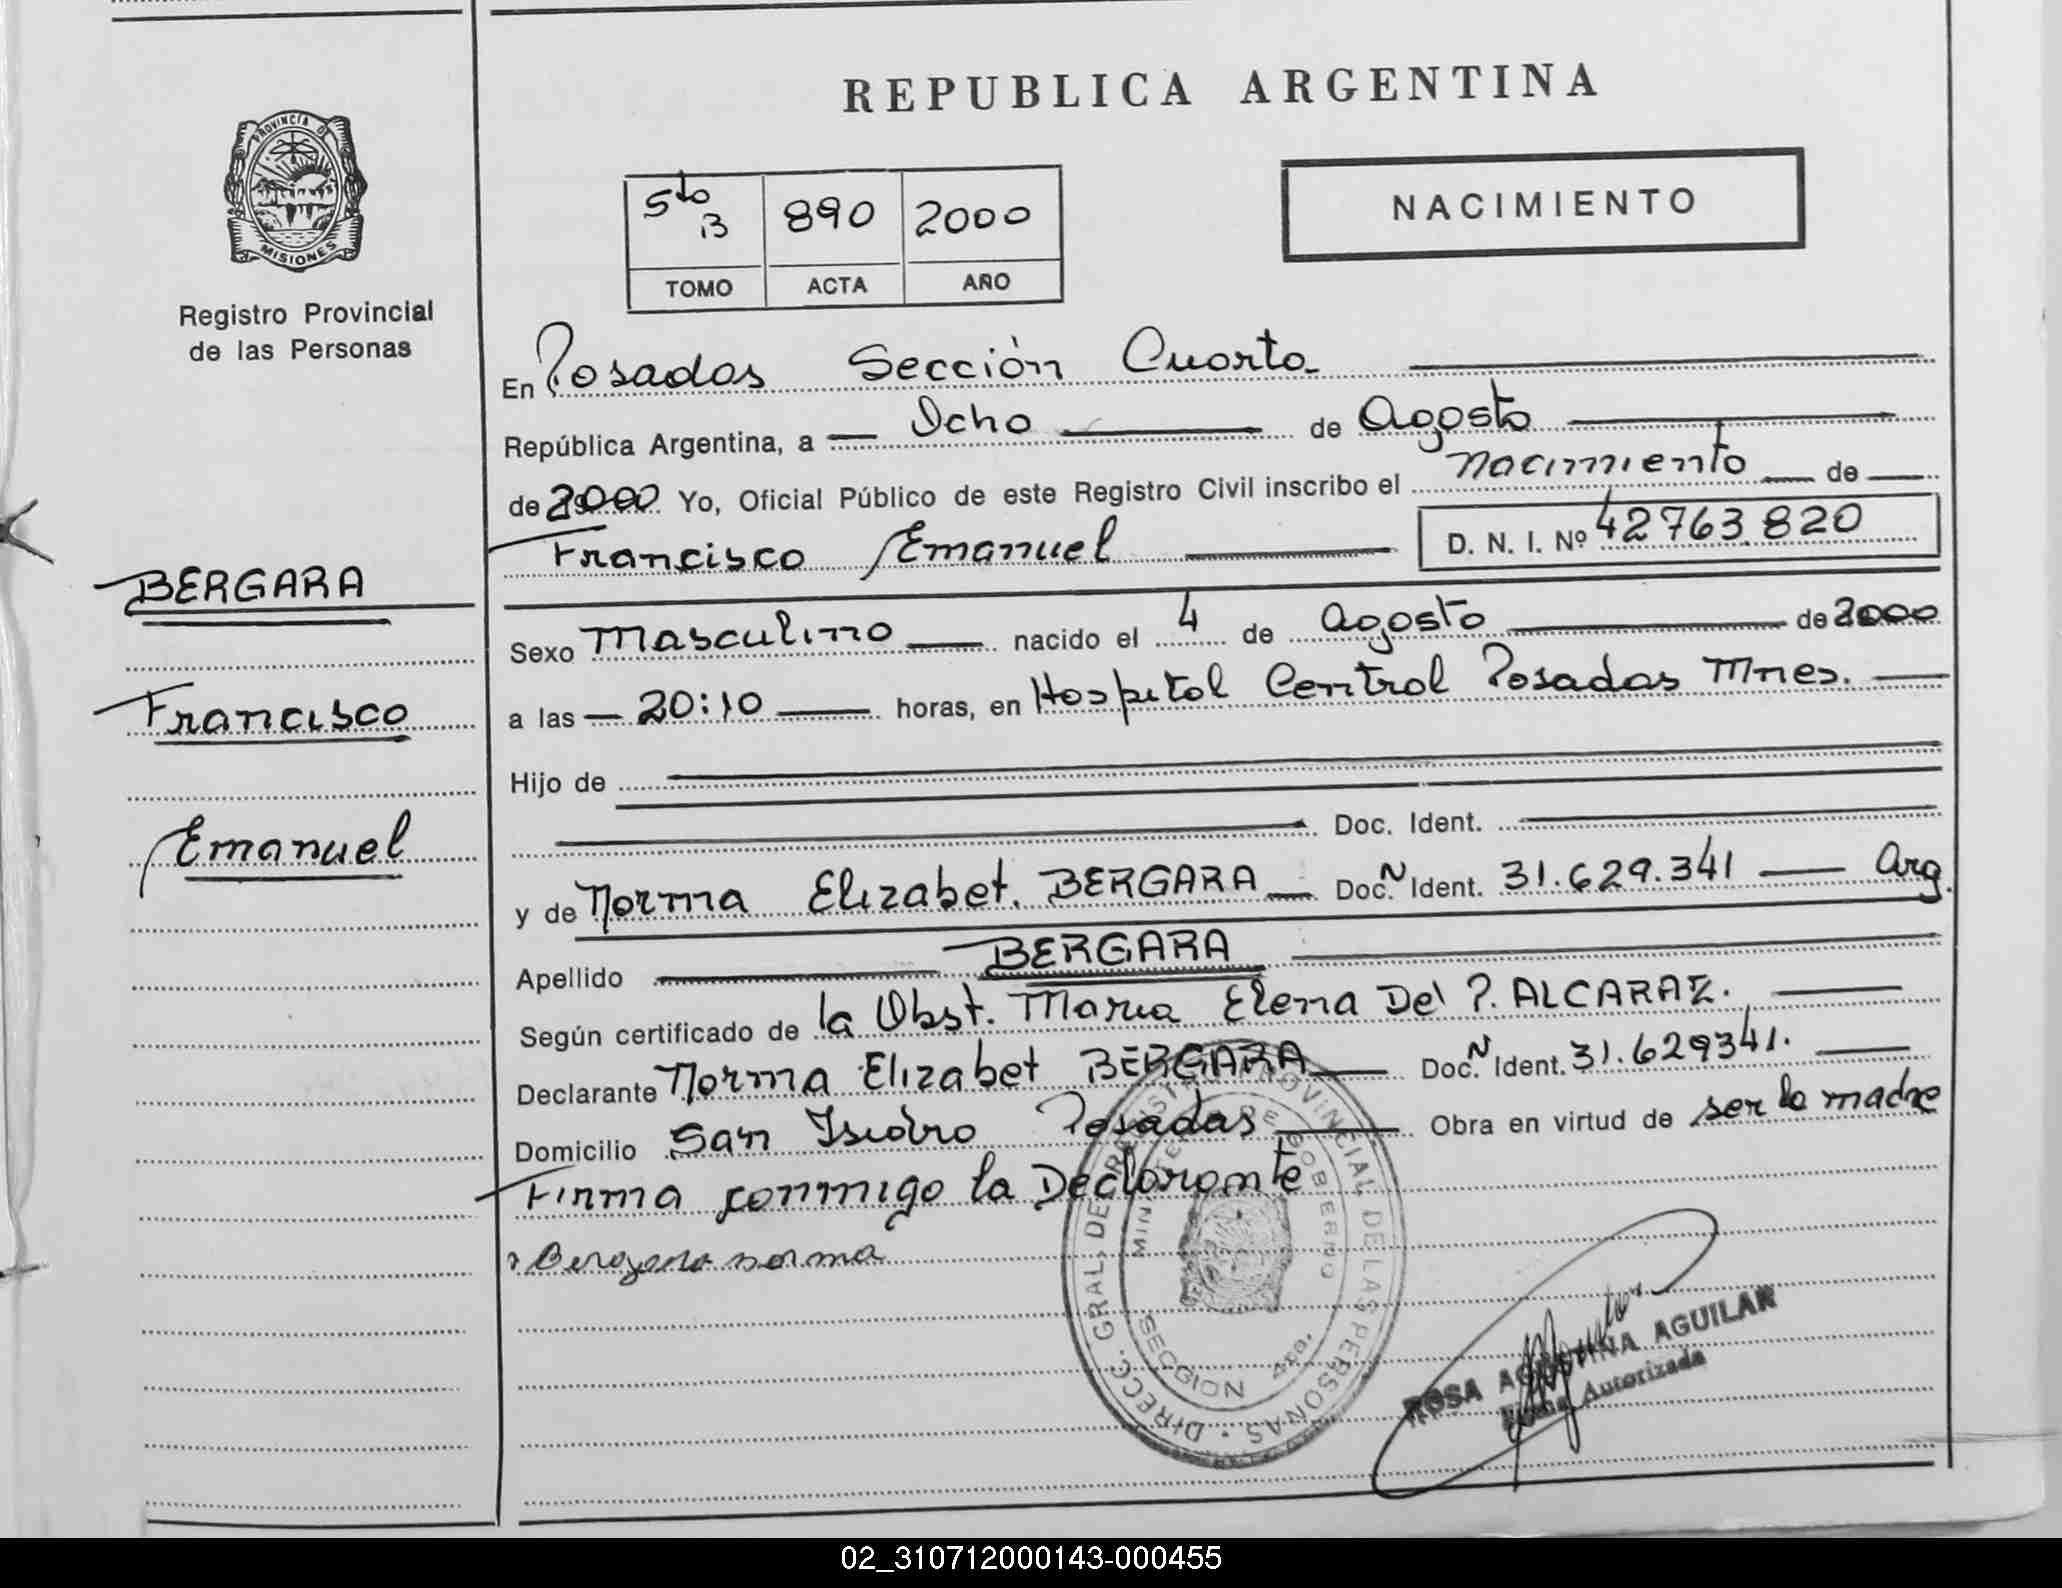 REPUBLICA ARGENTINA
PROVINCIA DE
MISIONES
Registro Provincial
de las Personas
5to B 890 2000
TOMO ACTA AÑO
NACIMIENTO
En Posadas Sección Cuarta
República Argentina, a Ocho de Agosto
de 2000 Yo, Oficial Público de este Registro Civil inscribo el nacimiento de
Francisco Emanuel D. N. I. Nº 42763820
BERGARA
Francisco
Emanuel
Sexo Masculino nacido el 4 de Agosto de 2000
a las 20:10 horas, en Hospital Central Posadas Mnes.
Hijo de
Doc. Ident.
y de Norma Elizabet. BERGARA Doc. N Ident. 31.629.341 Arg.
Apellido BERGARA
Según certificado de la Obst. Maria Elena Del P. ALCARAZ.
Declarante Norma Elizabet BERGARA Doc. N Ident. 31.629341.
Domicilio San Isidro Posadas Obra en virtud de ser la madre
Firma conmigo la Declarante
norma
DIRECC. GRAL. DE REGISTRO PROVINCIAL DE LAS PERSONAS.
MINISTERIO DE GOBIERNO
SECCION 4ta.
ROSA AGUSTINA AGUILAR
Firma Autorizada
02_310712000143-000455